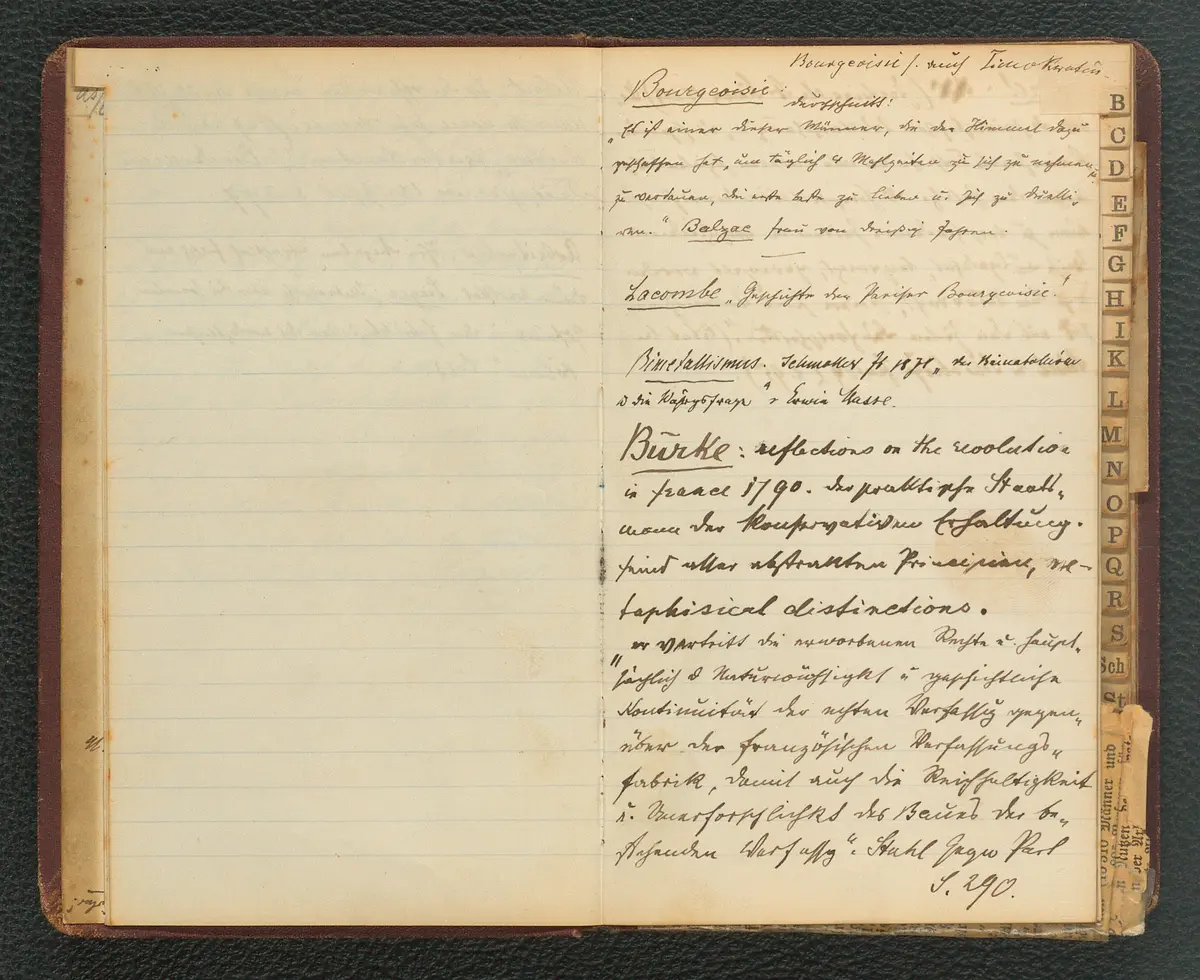 Bourgeoisie s. auch Timokratie
Bourgeoisie:
durchschnitt:
„Es ist einer dieser Männer, die der Himmel dazu
geschaffen hat, um täglich 4 Mahlzeiten zu sich zu nehmen u.
zu verdauen, die erste beste zu lieben u. sich zu duelli-
ren." Balzac Frau von dreißig Jahren.
Lacombe „Geschichte der Pariser Bourgeoisie!
Bimetallismus. Schmoller Jb 1878 „der Bimetallismus
u die Währgsfrage" v Erwin Nasse.
Burke: reflections on the revolution
in france 1790. der praktische Staats-
mann der konservativen Erhaltung.
feind aller abstrakten Principien, me-
taphisical distinctions.
„er vertritt die erworbenen Rechte u. haupt-
sächlich d Naturwüchsigkt u geschichtliche
Kontinuität der echten Verfassg gegen-
über der französischen Verfassungs-
fabrik, damit auch die Reichhaltigkeit
u. Unerforschlichkt des Baues der be-
stehenden Verfassg". Stahl Gegw Part
S. 290.
B
C
D
E
F
G
H
I
K
L
M
N
O
P
Q
R
S
Sch
St
Männer und